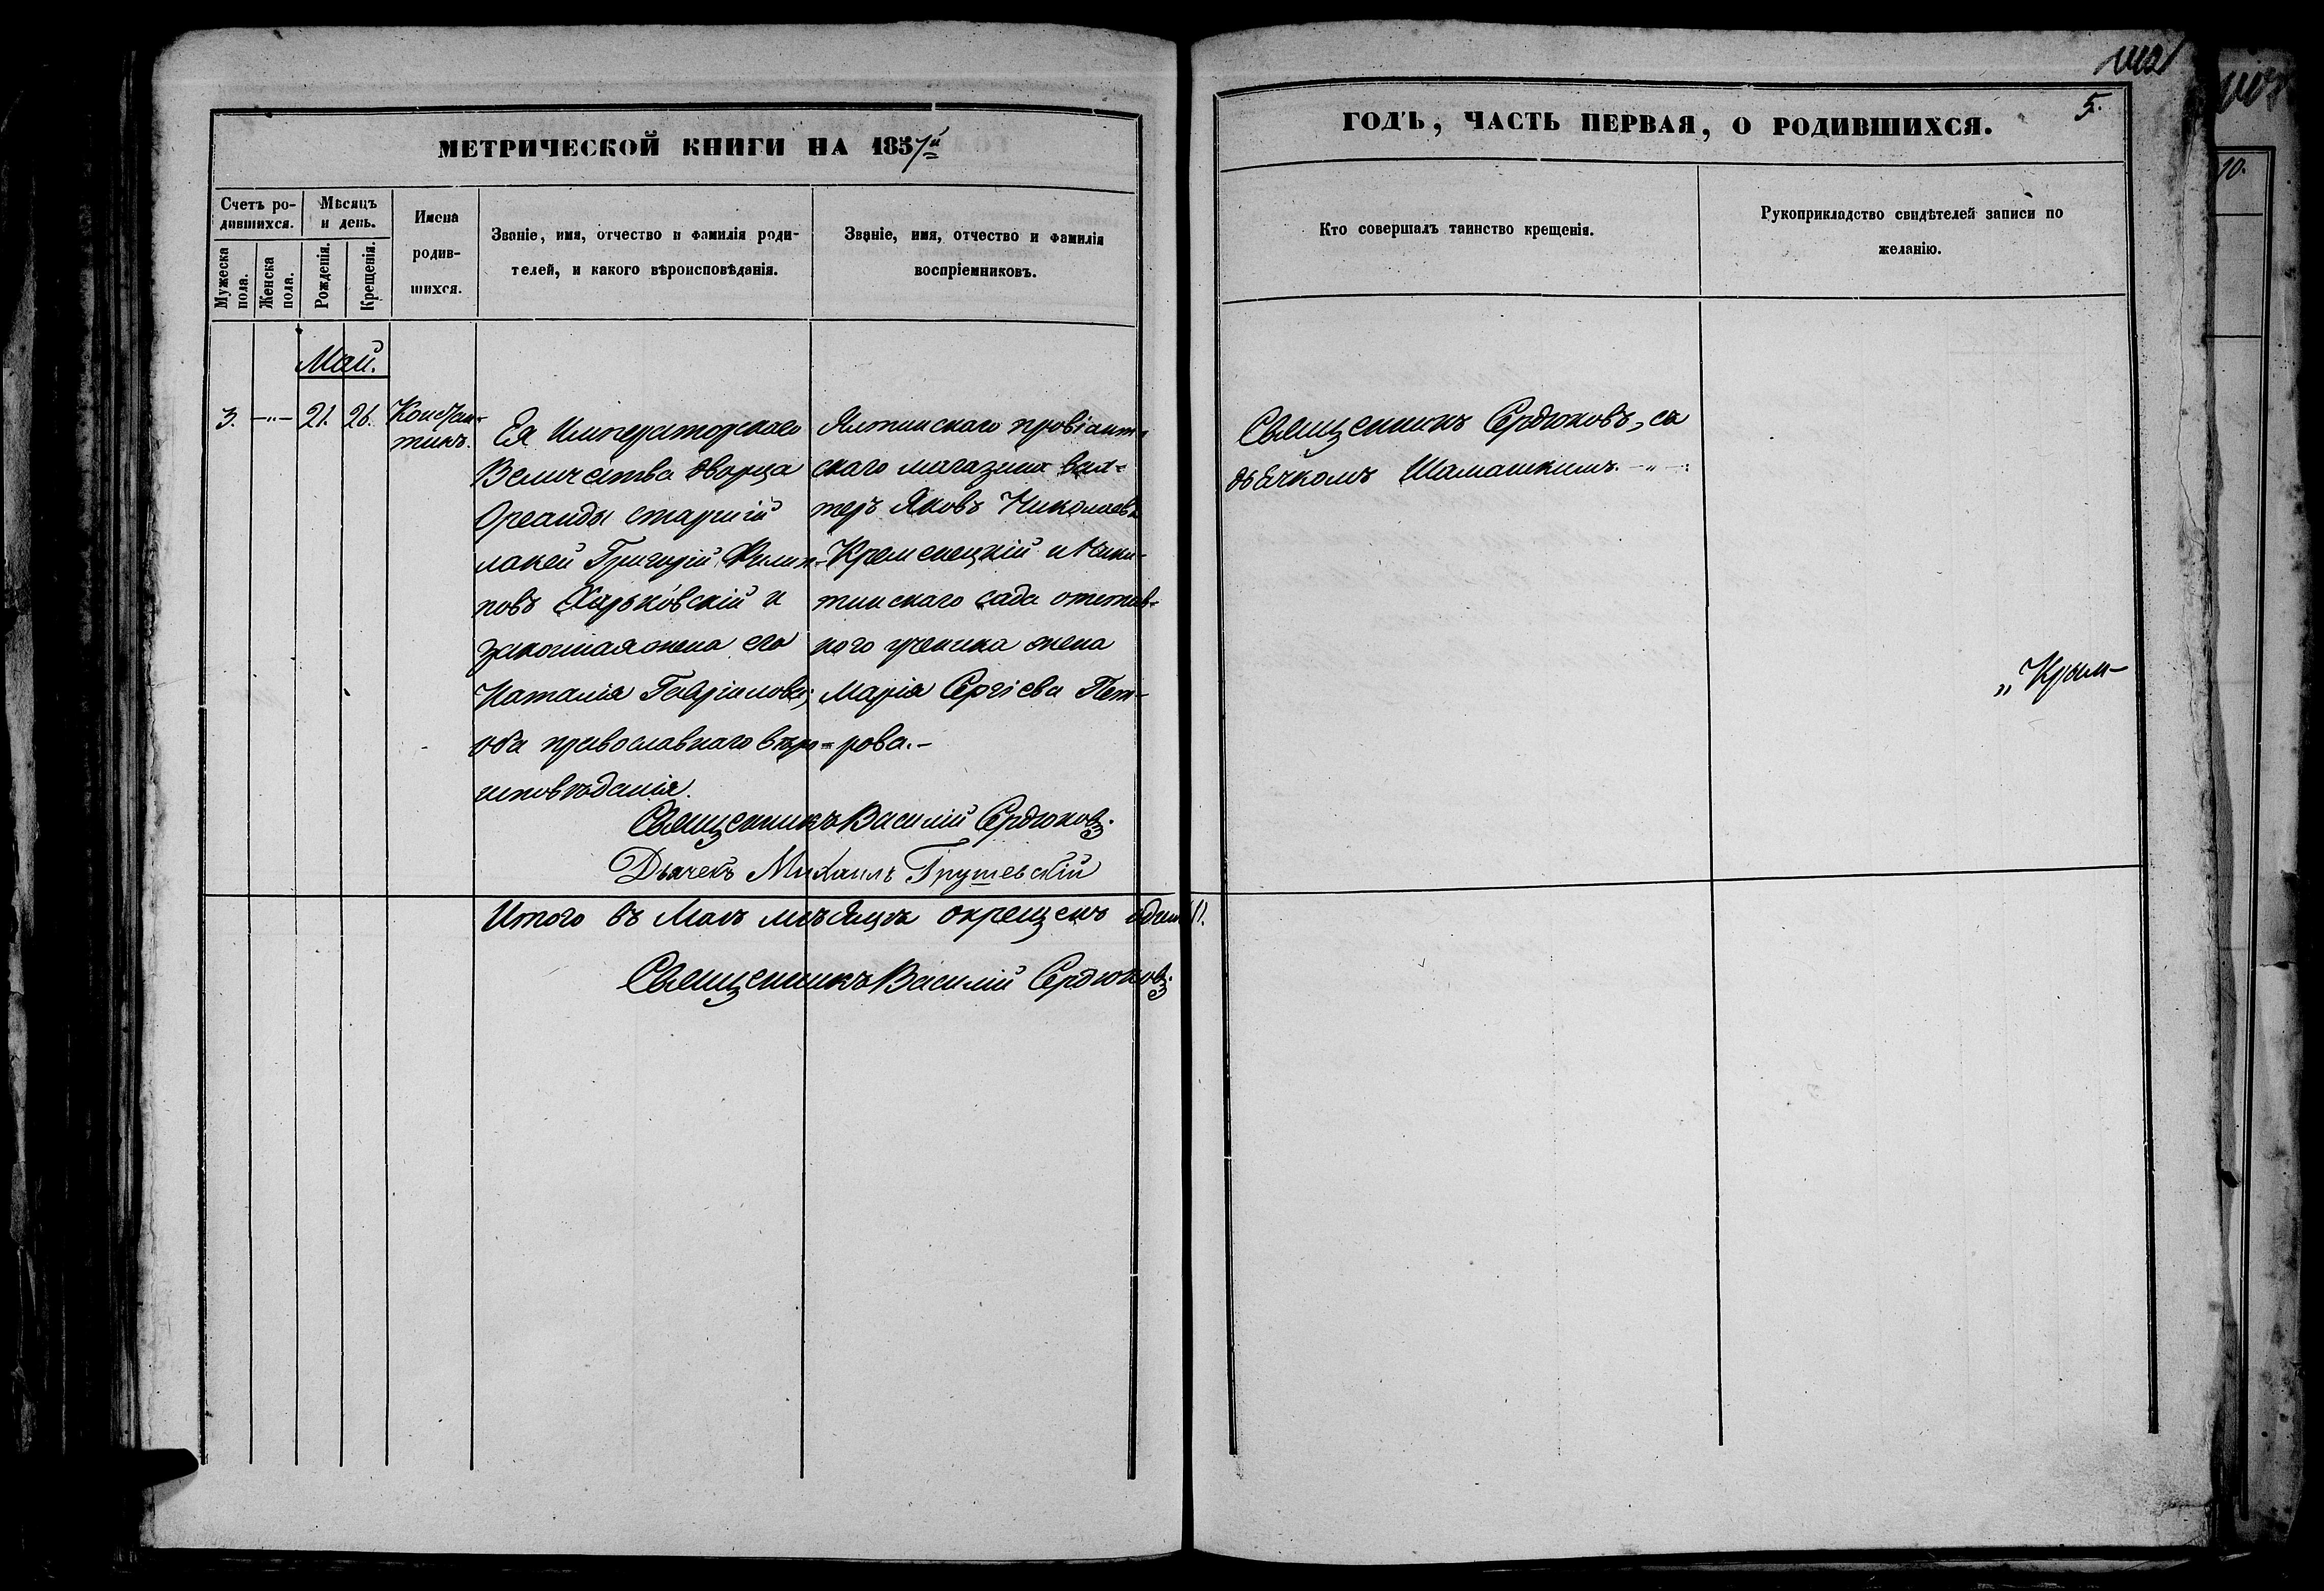 1102
5.
МЕТРИЧЕСКОЙ КНИГИ НА 1857й
ГОДЪ, ЧАСТЬ ПЕРВАЯ, О РОДИВШИХСЯ.
Счетъ ро-
дившихся.
Мужеска
пола.
Женска
пола.
Мѣсяцъ
и день.
Рожденія.
Крещенія.
Имена
родив-
шихся.
Званіе, имя, отчество и фамилія роди-
телей, и какого вѣроисповѣданія.
Званіе, имя, отчество и фамилія
воспріемниковъ.
Кто совершалъ таинство крещенія.
Рукоприкладство свидѣтелей записи по
желанію.
Май.
3. -"- 21. 26.
Констан-
тинъ.
Ея Императорскаго
Величества дворца
Ореанды старшій
лакей Григорій Филип-
повъ Харьковскій и
законная жена его
Наталія Гавріилова;
оба православнаго вѣро-
исповѣданія.
Ялтинскаго провіант-
скаго магазина вах-
теръ Яковъ Николаевъ
Кременецкій и Ники-
тинскаго сада отстав-
ного ученика жена
Марія Сергіева Пет-
рова.-
Священникъ Сердюковъ, съ
дьячкомъ Шамашкимъ. -"-
"Крым-
Священникъ Василій Сердюковъ.
Дьячекъ Михаилъ Грушевскій
Итого въ Маѣ мѣсяцѣ окрещенъ одинъ 1.
Священникъ Василій Сердюковъ.
1103
10.